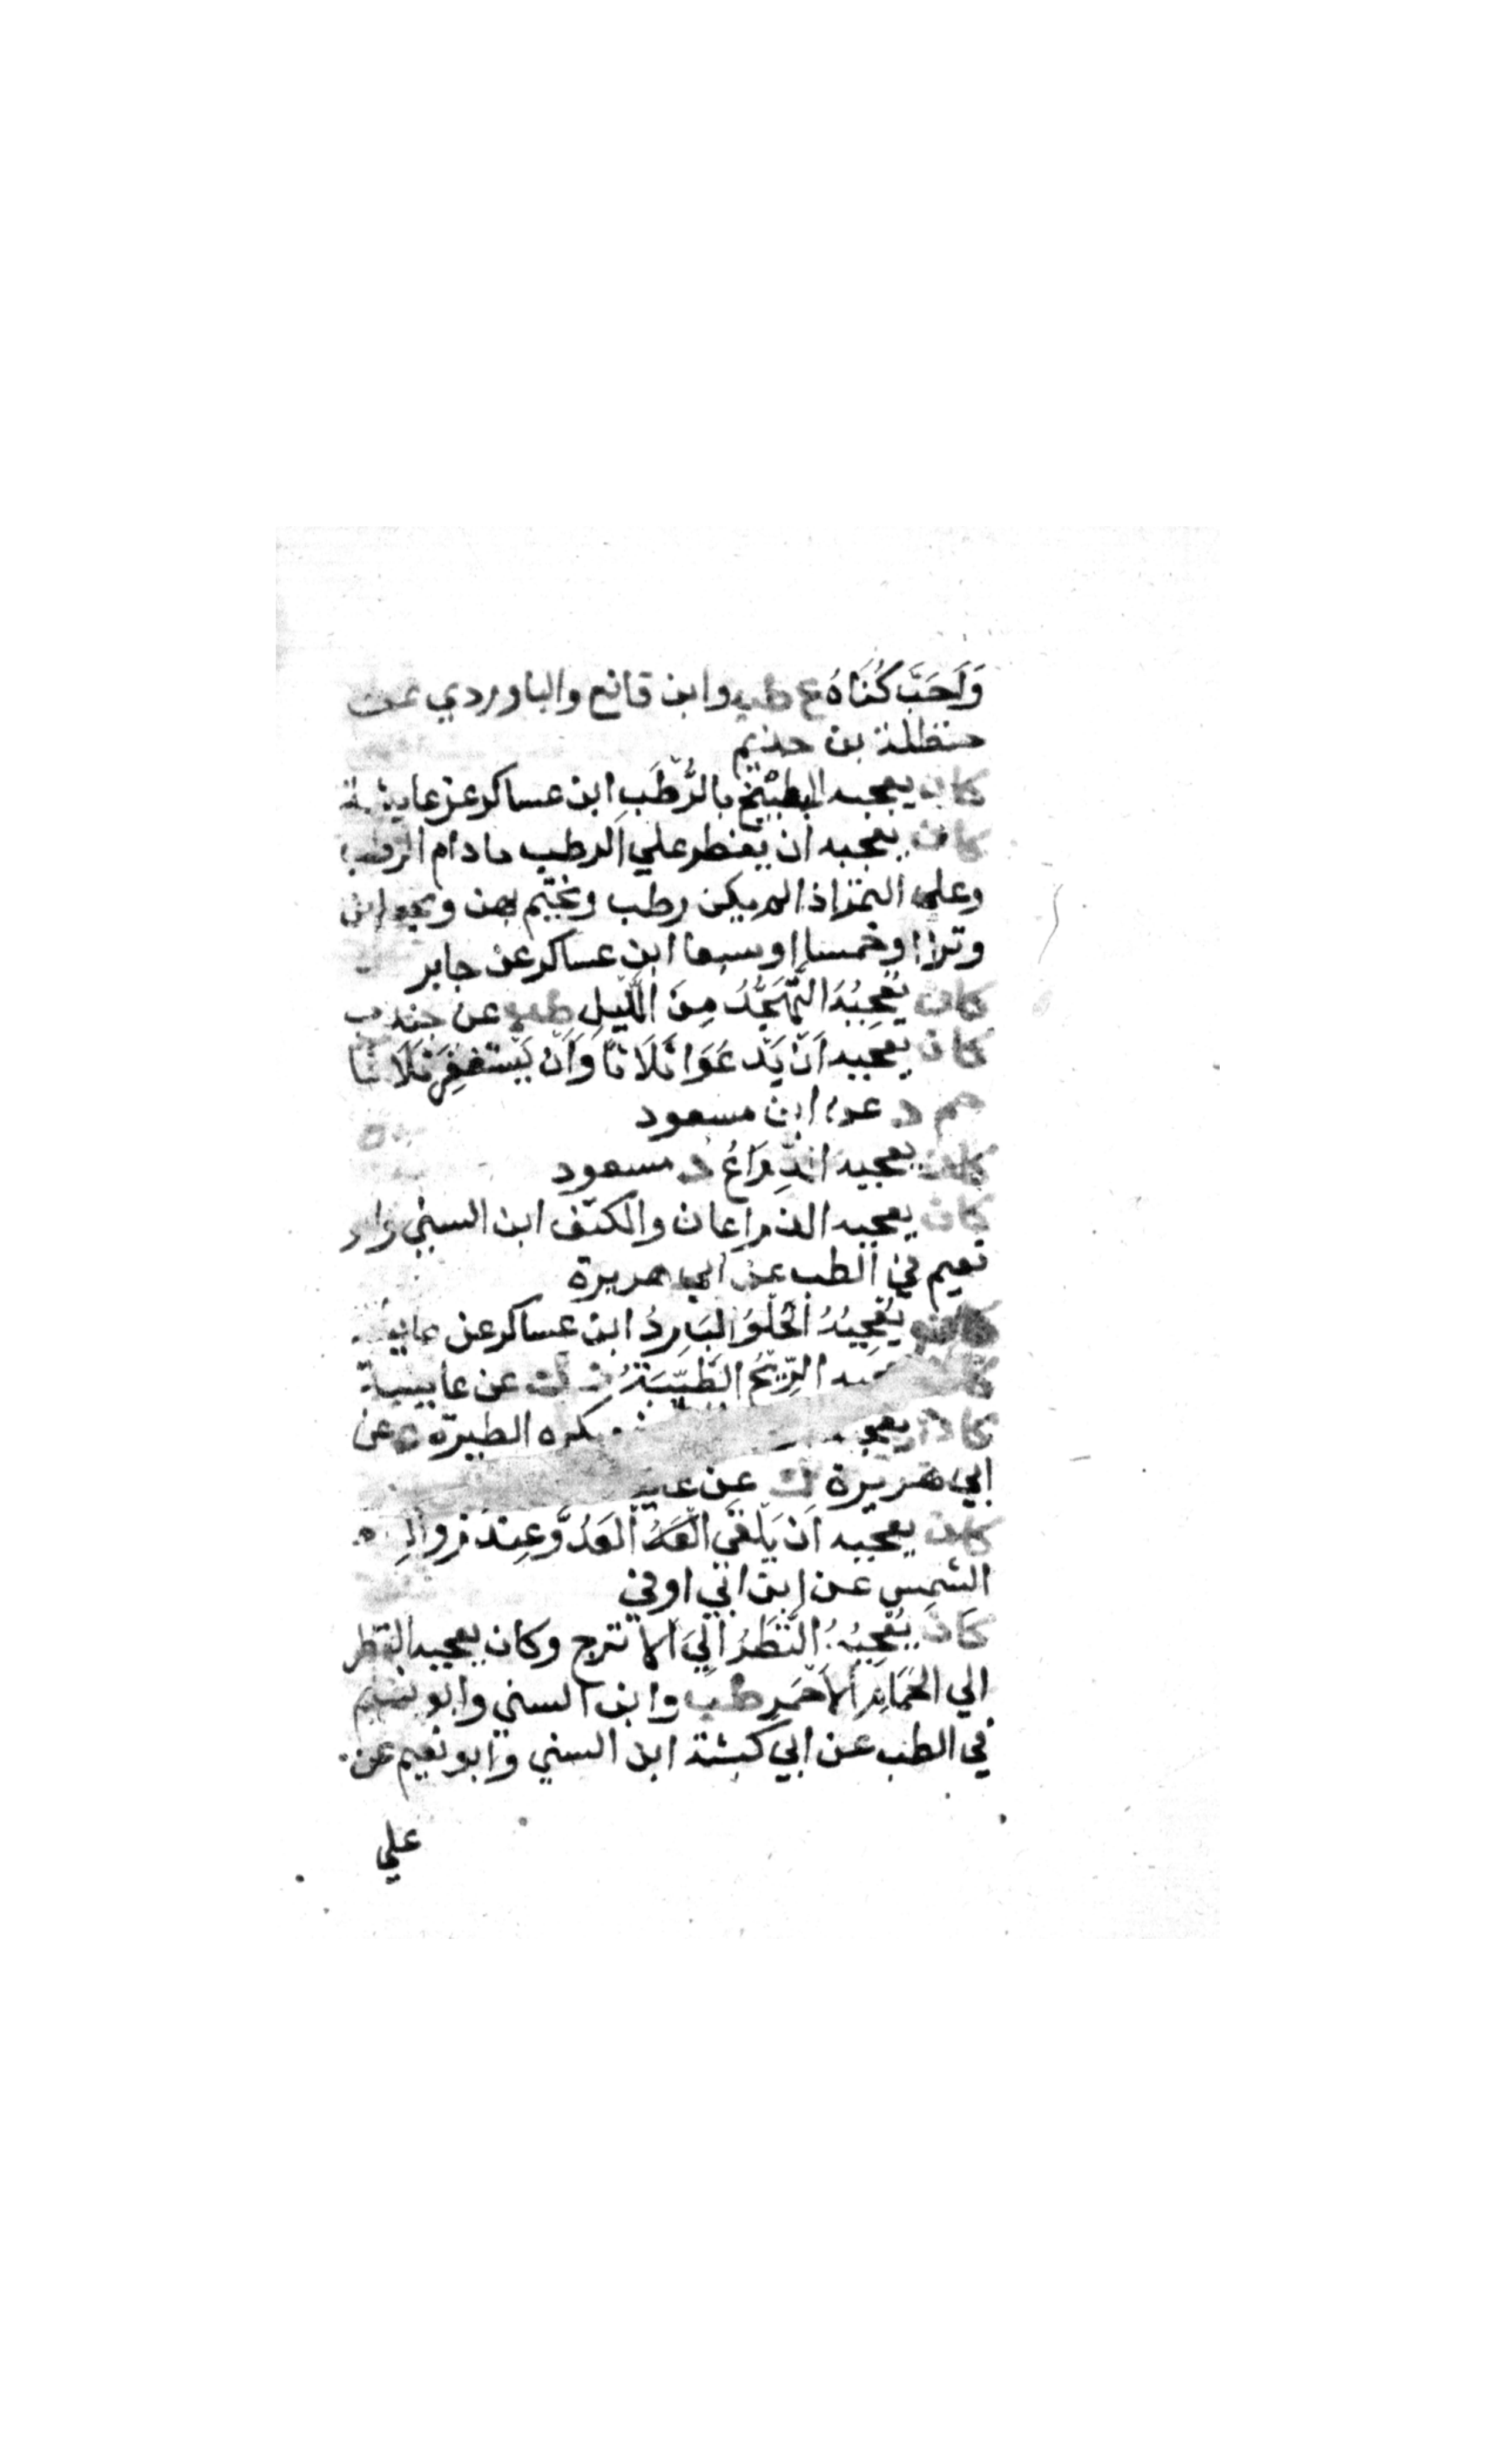 وَاَحَبَّ كُنَاهُ ع طب وابن قانع والباوردي عن
حنظلة بن حذيم
كان يعجبه البطيخ بالرُّطَبِ ابن عساكر عن عايشة
كان يعجبه ان يفطر علي الرطب ما دام الرطب
وعلي التمر اذا لم يكن رطب ويختم بهن ويجعلهن
وترا او خمسا او سبعا ابن عساكر عن جابر
كان يُعْجِبُهُ التَّهَجُّدُ مِنَ اللَّيلِ طب عن جندب
كان يعجبه اَنْ يَّدعَوَا ثَلَاثًا وَاَنْ يَّستغفِرَ ثَلَاثا
حم د عن ابن مسعود
كان يعجبه الذِّرَاعُ د مسعود
كان يعجبه الذراعان والكتف ابن السني وابو
نعيم في الطب عن ابي هريرة
كان يُعْجِبُهُ الْحُلْوُ البَارِدُ ابن عساكر عن عايشة
الرِّيْحُ الطَّيِّبَةُ د ك عن عايشة
كان يعجبه يكره الطيرة ه عن
ابي هريرة ك عن
كان يعجبه اَن يَلْقَي العَدُوَّ عِندَ زوالِ
الشمس عن ابن ابي اوفي
كَانَ يُعْجِبُهُ النَّظَرُ اِلَيَ الاتترج وكان يعجبه النظر
الي الحَمَامِ الاَحْمَرِ طب وابن السني وابو نعيم
في الطب عن ابي كبشة ابن السني وابو نعيم عن
علي